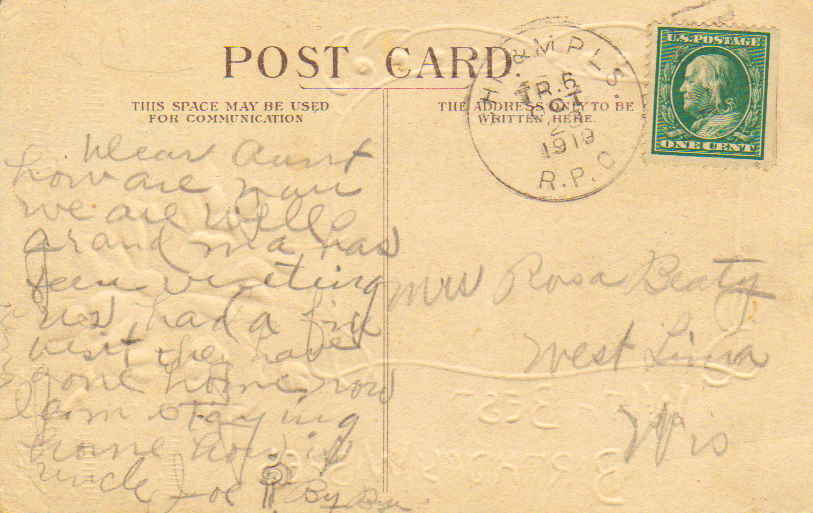 POST CARD.
THIS SPACE MAY BE USED
FOR COMMUNICATION
THE ADDRESS ONLY TO BE
WRITTEN HERE.
& MPLS.
TR. 6
OCT
1910
R.P.O
U.S. POSTAGE
ONE CENT
Dear Aunt
how are you
we are well
grand ma has
been visiting
us, had a fine
visit they have
gone home now
I am staying
home how is
uncle Joe By Bye
Mrs Rosa Beaty
West Lima
Wis
BEST
BIRTHDAY